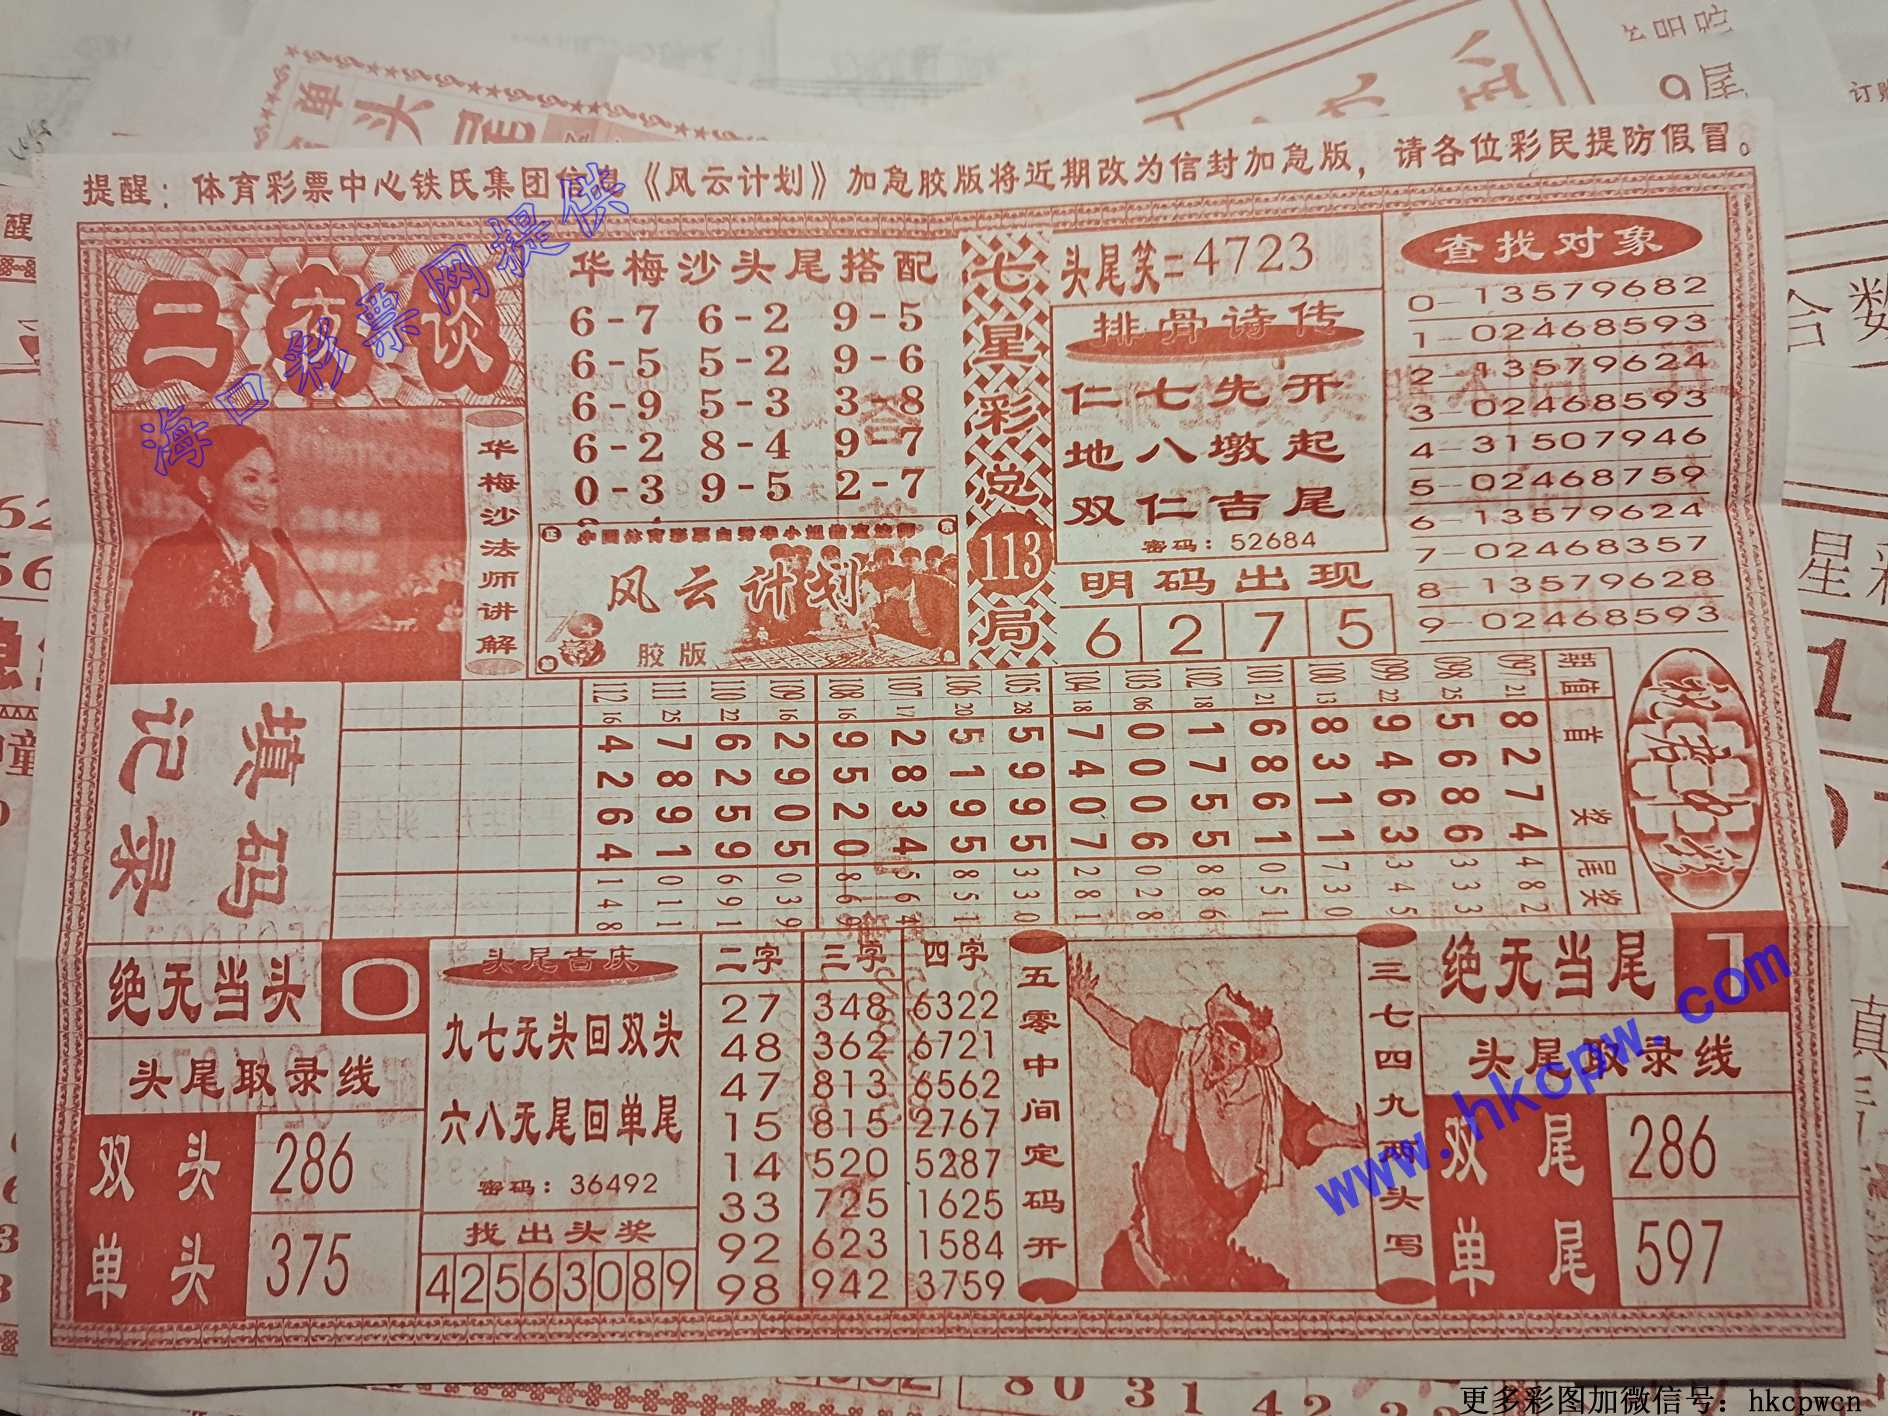 提醒：体育彩票中心铁氏集团信息《风云计划》加急胶版将近期改为信封加急版，请各位彩民提防假冒。
二夜谈
华梅沙法师讲解
华梅沙头尾搭配
6-7 6-2 9-5
6-5 5-2 9-6
6-9 5-3 3-8
6-2 8-4 9-7
0-3 9-5 2-7
风云计划
胶版
七星彩总113局
头尾笑=4723
排骨诗传
仁七先开
地八墩起
双仁吉尾
密码：52684
明码出现
6 2 7 5
查找对象
0-13579682
1-02468593
2-13579624
3-02468593
4-31507946
5-02468759
6-13579624
7-02468357
8-13579628
9-02468593
填码记录
112 111 110 109 108 107 106 105 104 103 102 101 100 099 098 097 期
16 25 22 16 16 17 20 28 18 06 18 21 13 22 25 21 值
4 7 6 2 9 2 5 5 7 0 1 6 8 9 5 8 首
2 8 2 9 5 8 1 9 4 0 7 8 3 4 6 2
6 9 5 0 2 3 9 9 0 0 5 6 1 6 8 7 奖
4 1 9 5 0 4 5 5 7 6 5 1 1 3 6 4
1 0 6 0 8 5 8 3 2 0 8 0 7 3 3 4 尾奖
4 1 9 3 6 6 5 3 8 2 8 5 3 4 3 8
8 1 1 9 9 4 1 0 1 8 6 1 0 5 3 2
绝无当头 0
头尾取录线
双头 286
单头 375
头尾吉庆
九七无头回双头
六八无尾回单尾
密码：36492
找出头奖
42563089
二字 三字 四字
27 348 6322
48 362 6721
47 813 6562
15 815 2767
14 520 5287
33 725 1625
92 623 1584
98 942 3759
五零中间定码开
三七四九两头写
绝无当尾
头尾取录线
双尾 286
单尾 597
海口彩票网提供
www.hkcpw.com
更多彩图加微信号：hkcpwcn